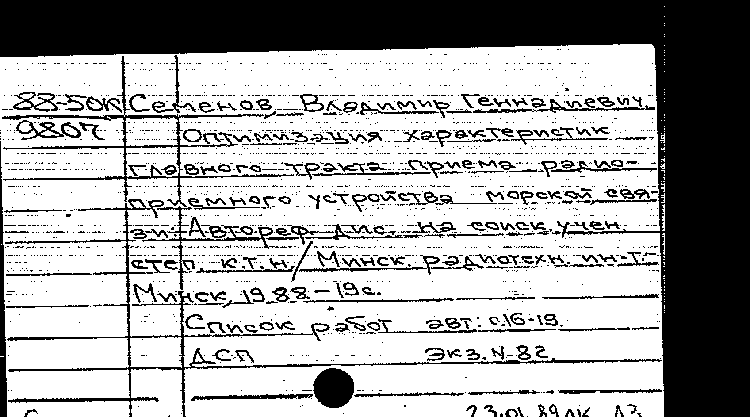 88-50к Семенов, Владимир Геннадиевич.
980ч Оптимизация характеристик
главного тракта приема радио-
приемного устройства морской свя-
зи: Автореф. дис. на соиск. учен.
степ. к.т.н. / Минск. радиотехн. ин-т.-
Минск, 1988.-19с.
Список работ авт.: с.16-19.
ДСП Экз. №82.
23.01.89